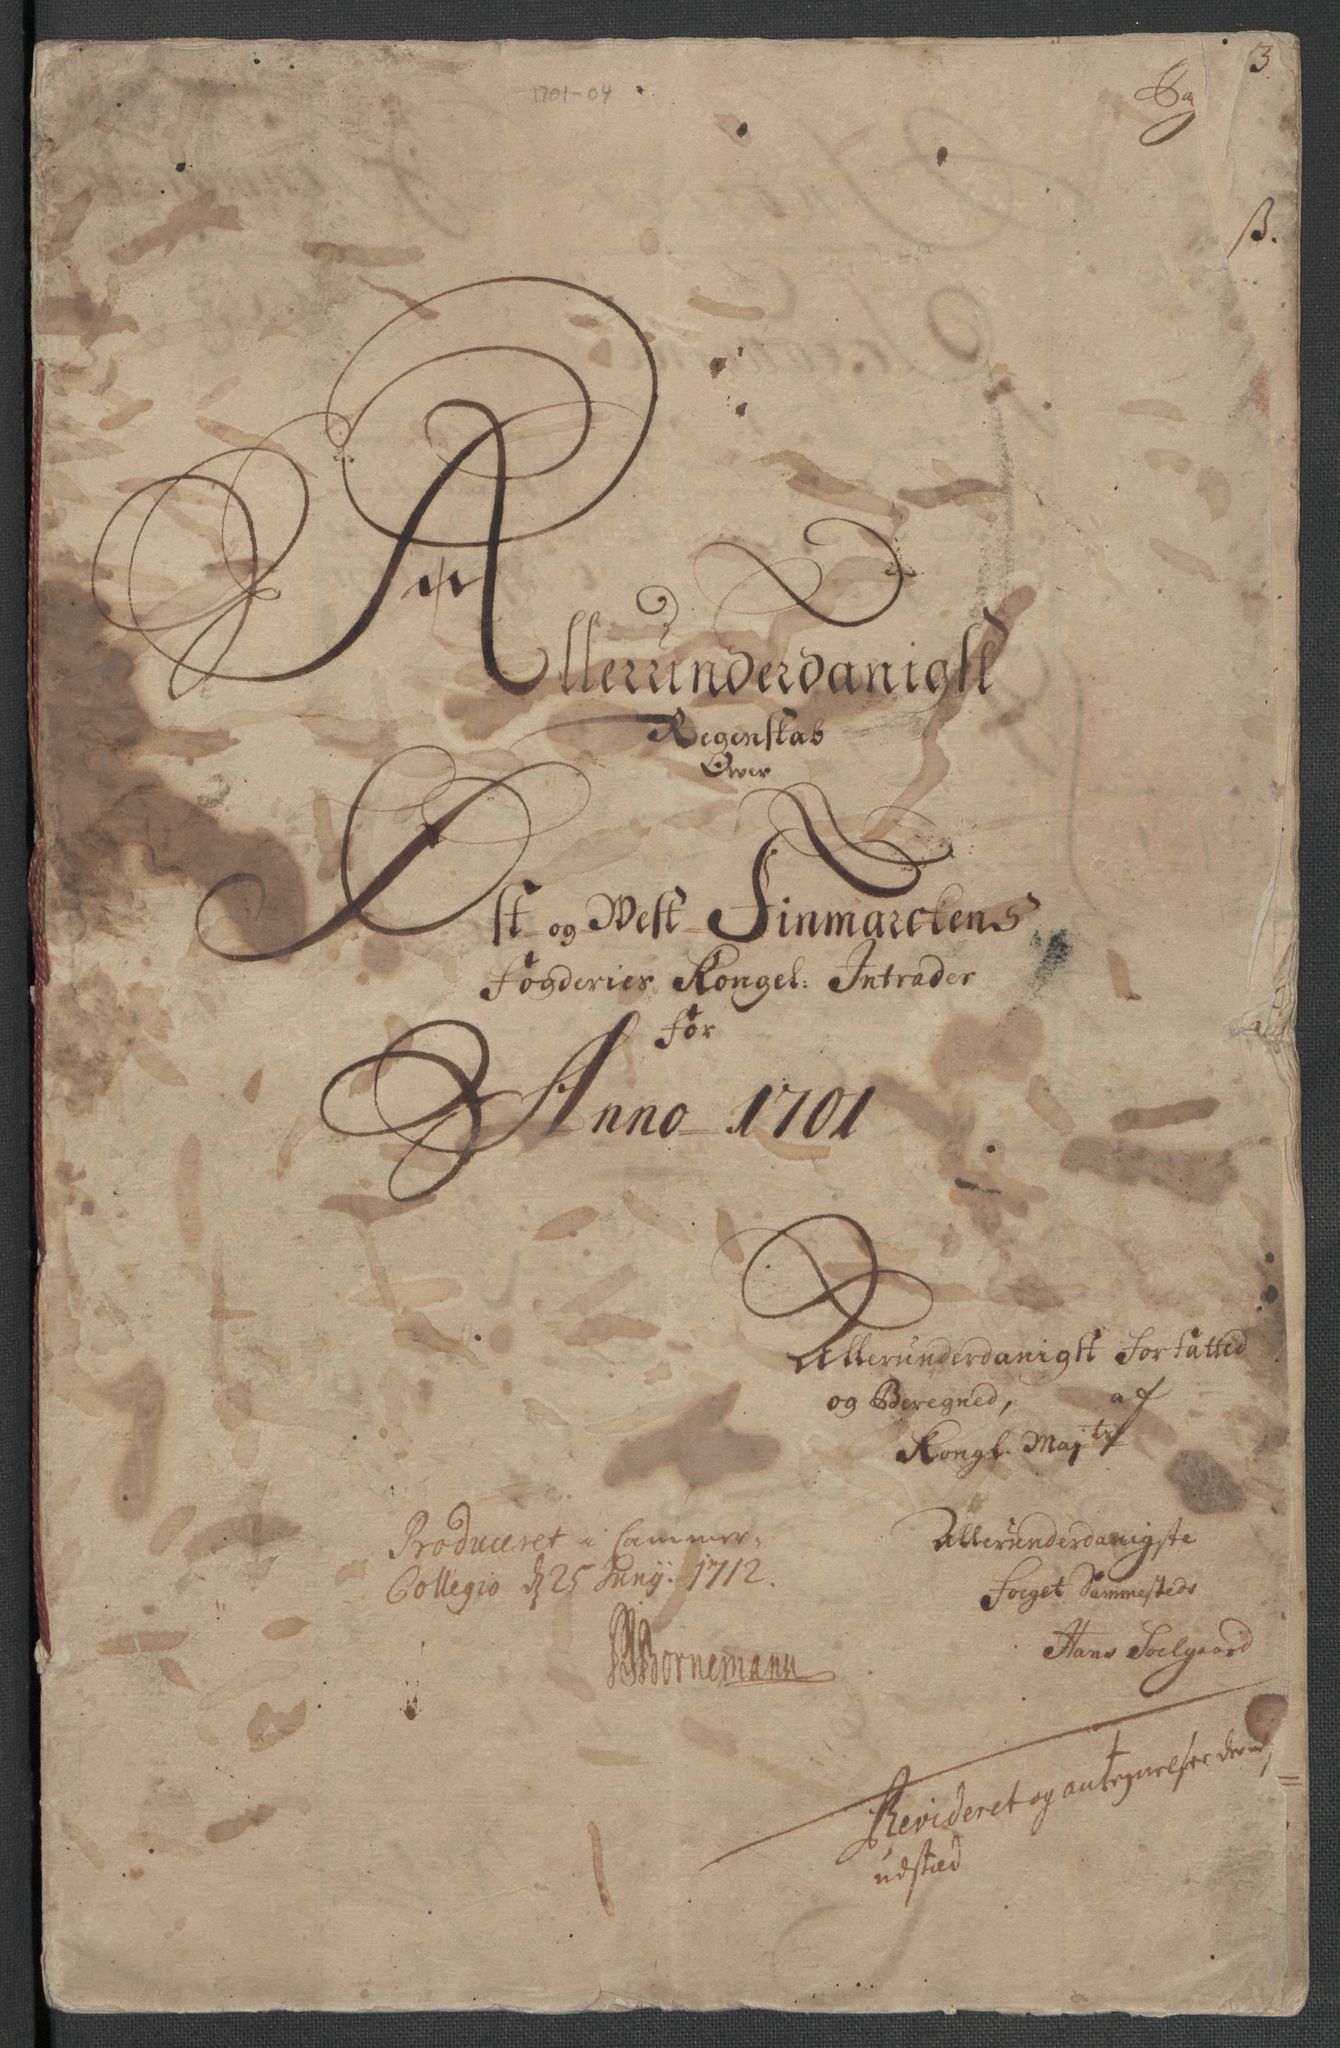 1701-04
3
B.
Allerunderdanigst
Regenskab
Over
Ost og West Finmarckens
Fogderier Kongel: Intrader
for
Anno 1701
Allerunderdanigst forfatted
og Beregned, af
Kongl. Majts
Allerunderdanigste
foeget Sammesteds
Hans Soelgaard
Produceret i Cammer-
Collegio d 25 Junij. 1712.
Bornemann
Revideret og antegnelser derud
udstæd